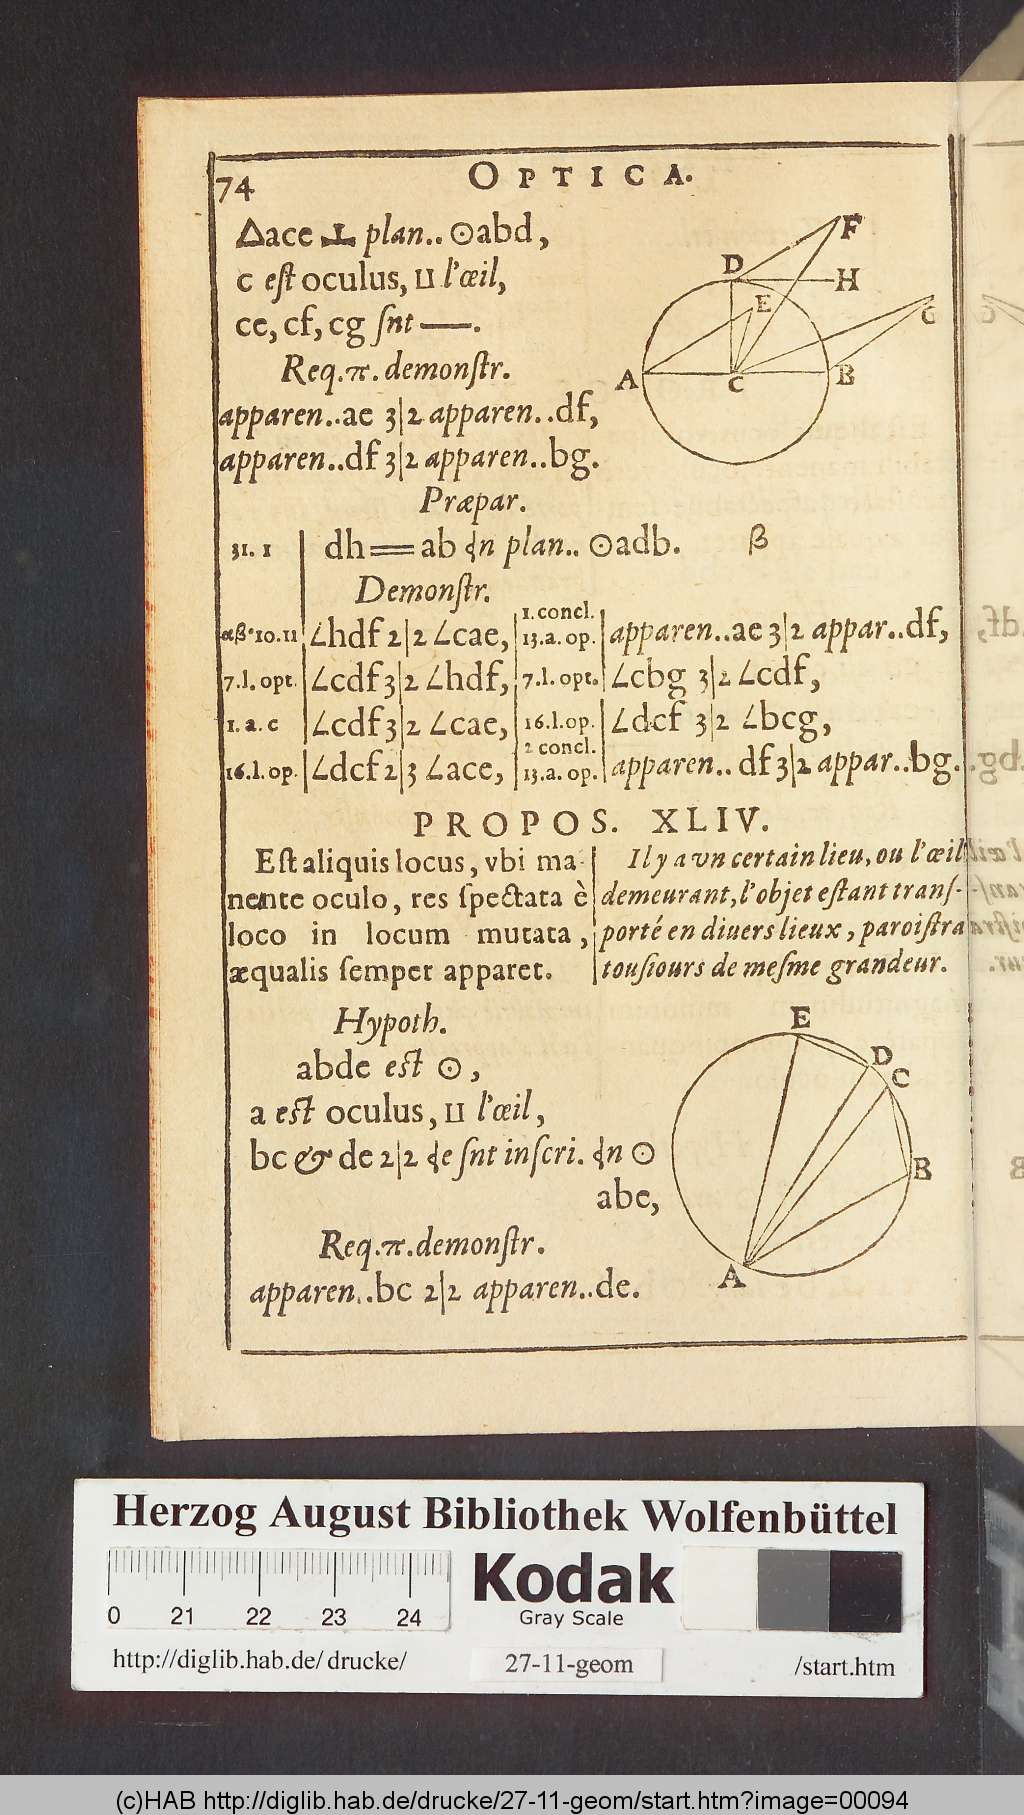 74
OPTICA.
△ace ⊥ plan.. ⊙abd,
c est oculus, ⊔ l'œil,
ce, cf, cg ſnt —.
Req. π. demonſtr.
apparen..ae 3|2 apparen..df,
apparen..df 3|2 apparen..bg.
F
D
H
E
G
A
C
B
Præpar.
31. 1 dh = ab plan.. ⊙adb. β
Demonſtr.
10.11 ∠hdf 2|2 ∠cae, 1. concl. 13. a. op. apparen..ae 3|2 appar..df,
7. l. opt. ∠cdf 3|2 ∠hdf, 7. l. opt. ∠cbg 3|2 ∠cdf,
1. a. c ∠cdf 3|2 ∠cae, 16. l. op. ∠dcf 3|2 ∠bcg,
16. l. op. ∠dcf 2|3 ∠ace, 2 concl. 13. a. op. apparen.. df 3|2 appar..bg.
PROPOS. XLIV.
Eſt aliquis locus, vbi ma-
nente oculo, res ſpectata è
loco in locum mutata,
æqualis ſemper apparet.
Il y a vn certain lieu, ou l'œil
demeurant, l'objet eſtant tranſ-
porté en diuers lieux, paroiſtra
touſiours de meſme grandeur.
Hypoth.
abde est ⊙,
a est oculus, ⊔ l'œil,
bc & de 2|2 ſnt inſcri. ⊙
abe,
Req. π. demonſtr.
apparen..bc 2|2 apparen..de.
E
D
C
B
A
Herzog August Bibliothek Wolfenbüttel
0 21 22 23 24
Kodak
Gray Scale
http://diglib.hab.de/drucke/
27-11-geom
/start.htm
(c)HAB http://diglib.hab.de/drucke/27-11-geom/start.htm?image=00094